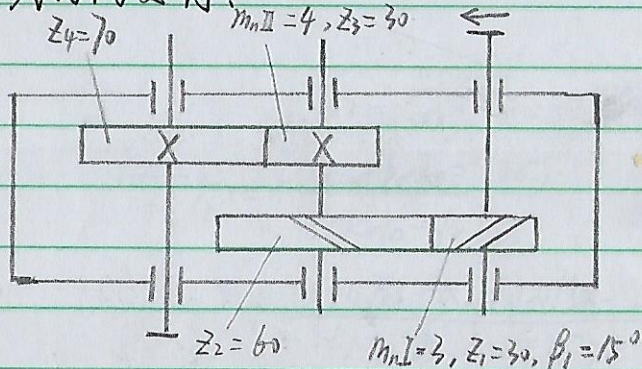 Z₄=70
mₙⅡ=4, Z₃=30
Z₂=60
mₙⅠ=3, Z₁=30, β₁=15°